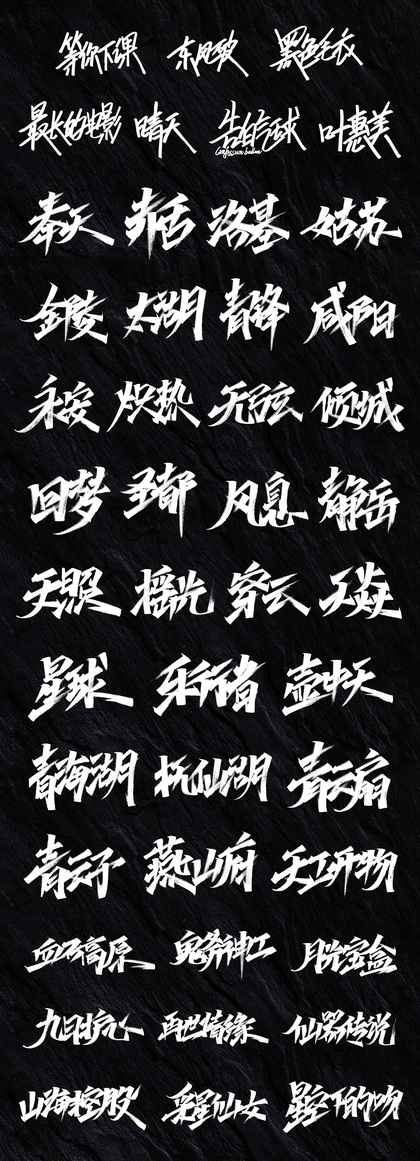 等你下课 东风破 黑色毛衣
最长的电影 晴天 告白气球 叶惠美
Confession balloon
奉天 先舌 洛基 姑苏
金陵 太湖 青锋 咸阳
永安 炽热 无弦 倾城
回梦 圣都 风息 静岳
天照 摇光 穿云 天焱
星球 乐行者 壶中天
青海湖 抚仙湖 青云扇
青云子 燕山府 天工开物
血石高原 鬼斧神工 月光宝盒
九日 再世情缘 仙器传说
山海控股 采星仙女 星空下的吻